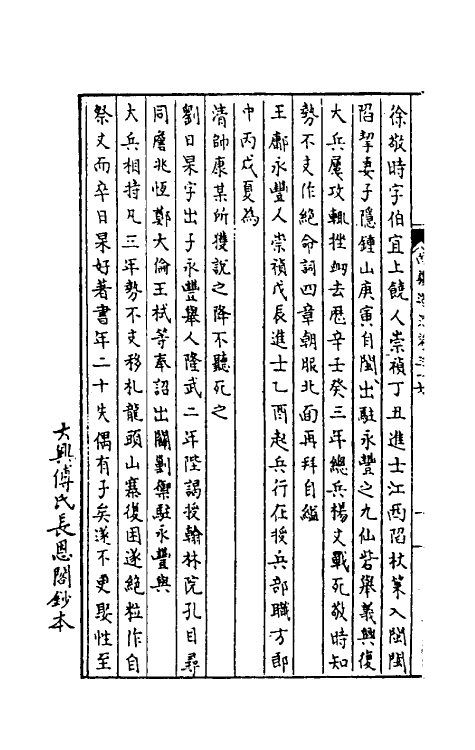 徐敬時字伯宜上饒人崇禎丁丑進士江西陷杖策入閩閩
陷挈妻子隱鍾山庚寅自閩出駐永豐之九仙砦舉義興復
大兵屢攻輒挫衂去歷辛壬癸三年總兵楊文戰死敬時知
勢不支作絕命詞四章朝服北面再拜自縊
王鄜永豐人崇禎戊辰進士乙酉起兵行在授兵部職方郎
中丙戌夏為
清帥康某所獲說之降不聽死之
劉日杲字出子永豐舉人隆武二年陛謁授翰林院孔目尋
同詹兆恆鄭大倫王栻等奉詔出關剿禦駐永豐與
大兵相持凡三年勢不支移札龍頭山寨復困遂絕粒作自
祭文而卒日杲好著書年二十失偶有子矣遂不更娶性至
大興傅氏長恩閣鈔本